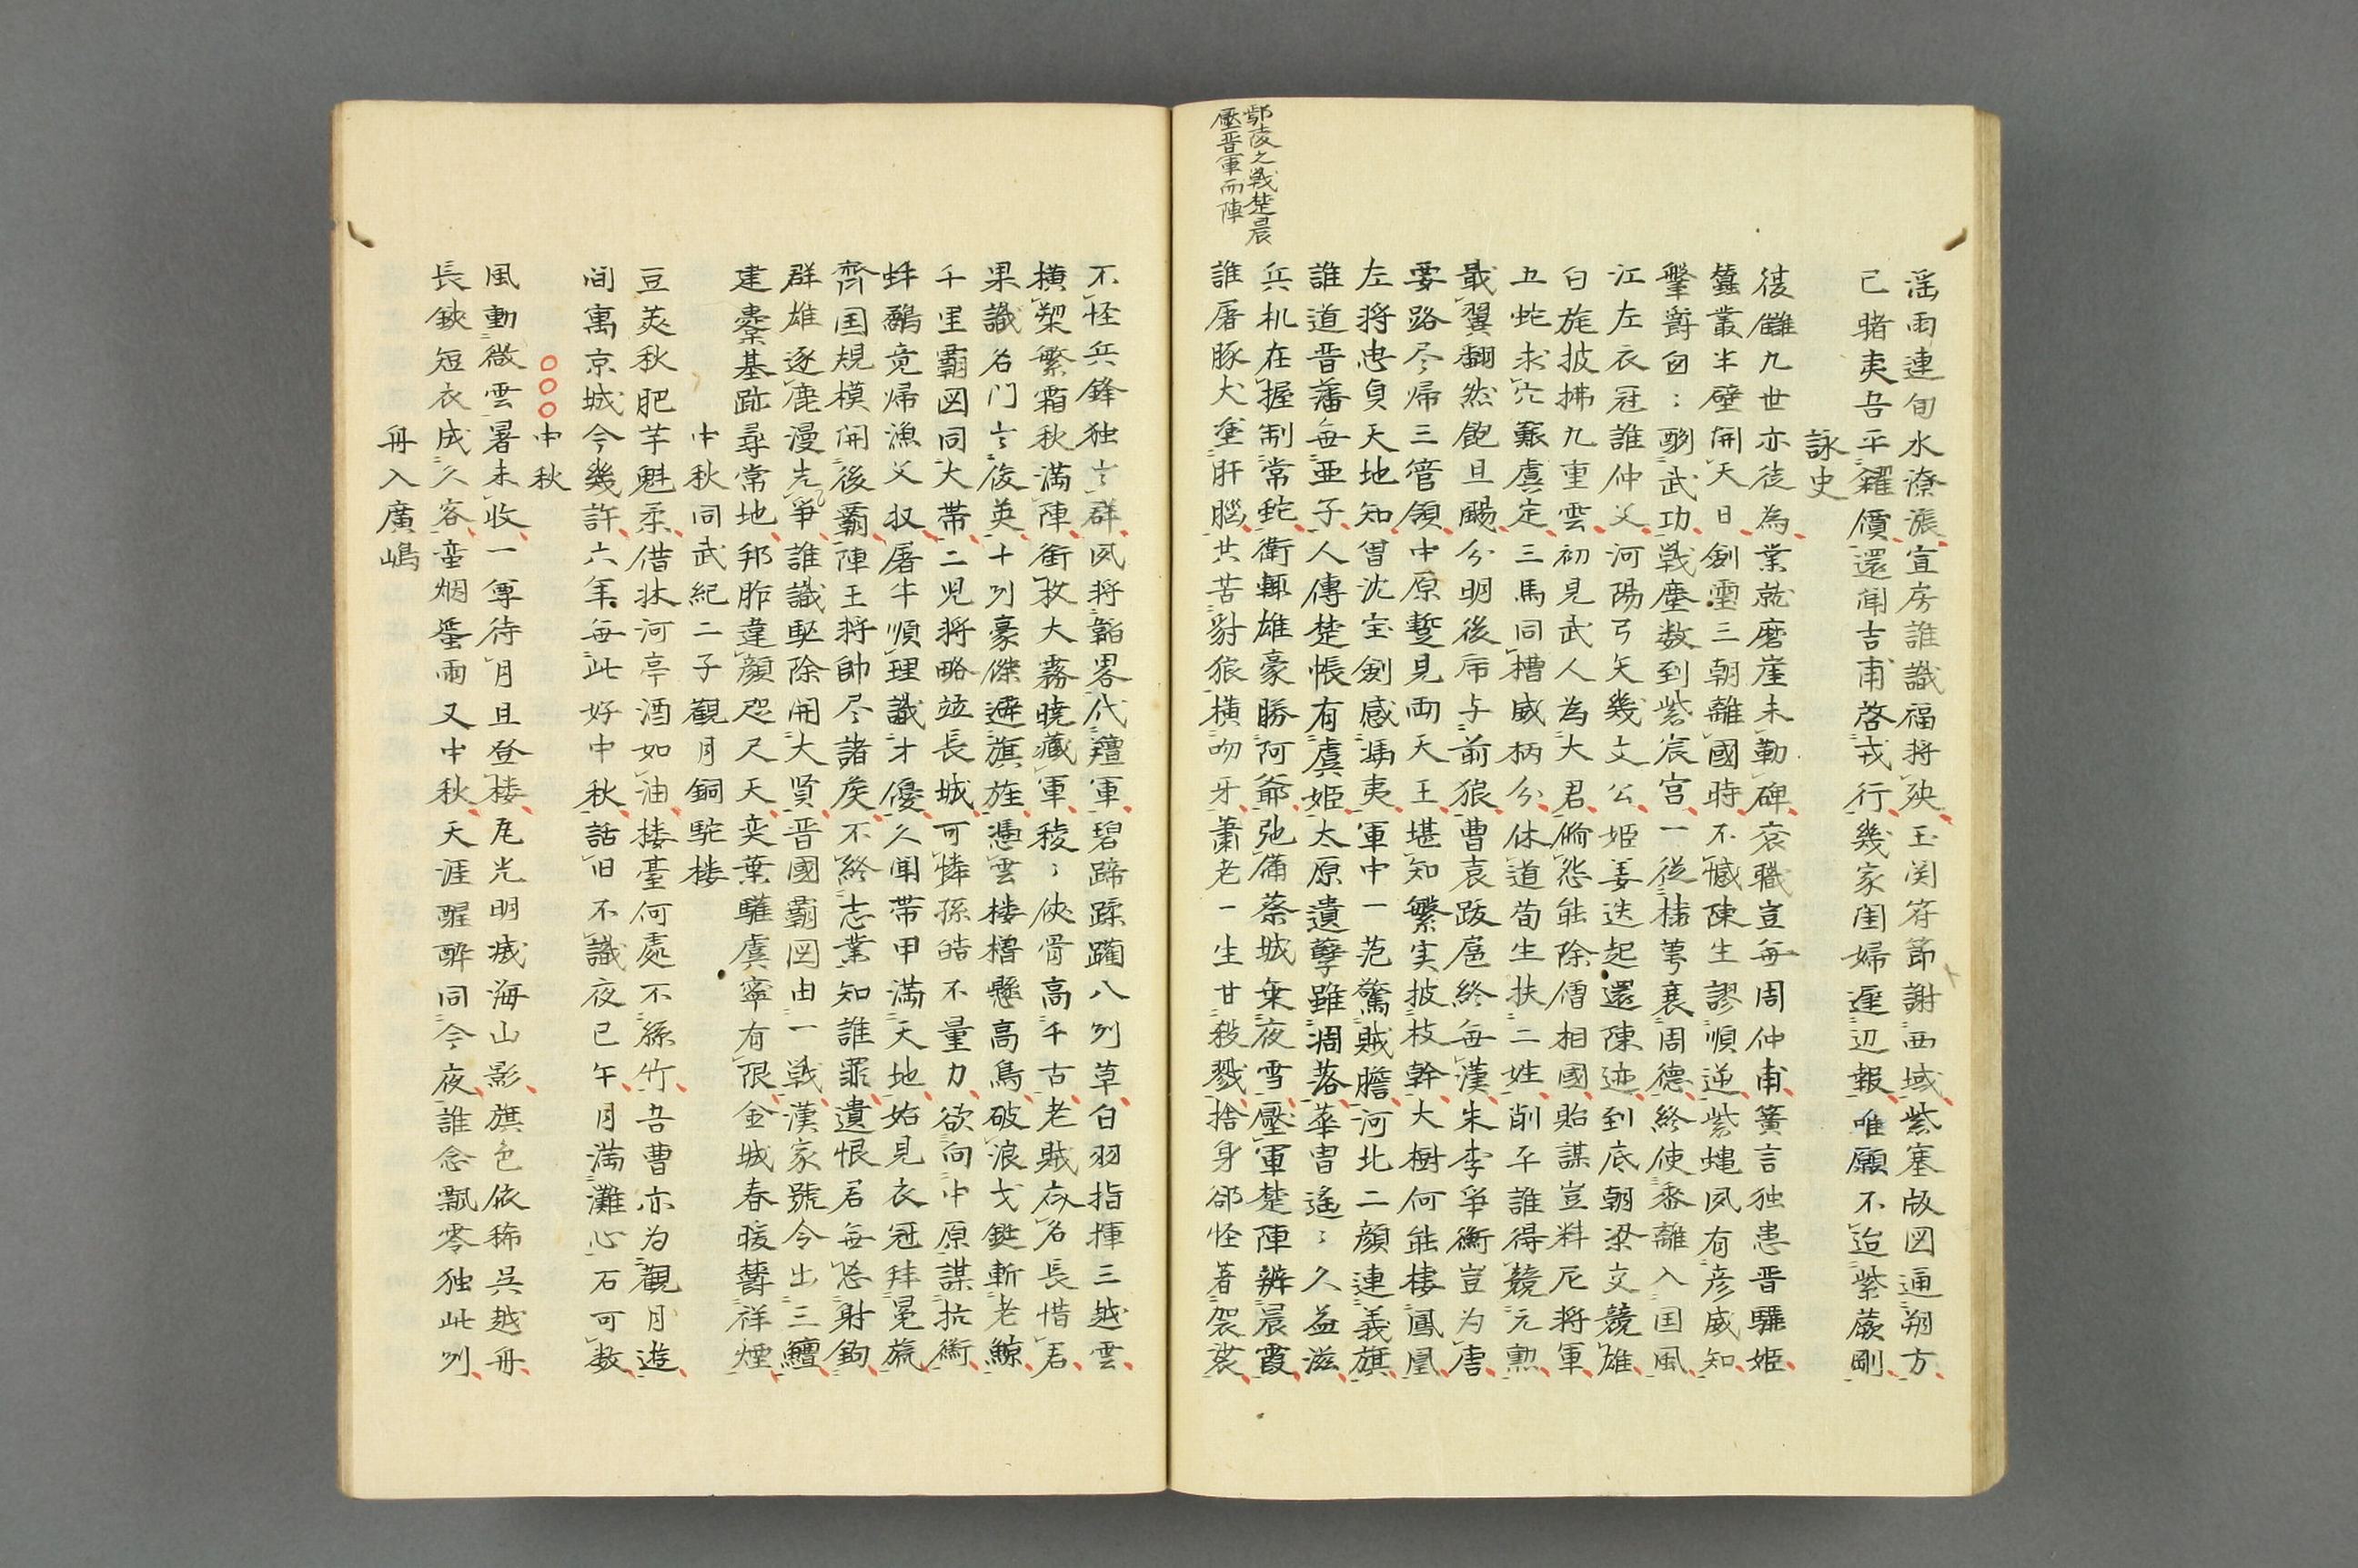 鄢陵之戦楚晨
壓晋軍而陣
淫雨連旬水潦漲宣房誰識福将殃玉関符節謝西域紫塞版図通朔方
已睹夷吾平糴價還聞吉甫啓戎行幾家閨婦遅辺報唯願不迨紫蕨剛
詠史
復讎九世亦徒為業就磨崖未勒碑衮職豈毎周仲甫簧言独患晋驪姫
蠶叢半壁開天日剣璽三朝離國時不憾陳生謬順逆紫蠅夙有彦威知
鞶爵匈〻酬武功戦塵数到紫宸宮一従棣萼衰周德終使黍離入国風
江左衣冠誰仲父河陽弓矢幾文公姫姜迭起還陳迹到底朝梁交競雄
白旄披拂九重雲初見武人為大君脩怨能除僧相國貽謀豈料尼将軍
五蛇求穴艱虞定三馬同槽威柄分休道荀生扶二姓削平誰得競元勲
戢翼翻然飽且颺分明後虎与前狼曹袁跋扈終毎漢朱李爭衡豈为唐
要路尽帰三管領中原暫見両天王堪知繁実披枝幹大樹何能棲鳳凰
左将忠貞天地知曽沈宝剣感馮夷軍中一范驚賊膽河北二顔連義旗
誰道晋藩毎亜子人傳楚帳有虞姫太原遺孽雖凋落華冑遥〻久益滋
兵机在握制常蛇衛輒雄豪勝阿爺弛備蔡城乗夜雪壓軍楚陣辨晨霞
誰屠豚犬塗肝脳共苦豺狼横吻牙蕭老一生甘殺戮捨身郤怪著袈裟
不怪兵鋒独立群夙将韜略代羶軍碧蹄蹂躙八州草白羽指揮三越雲
横槊繁霜秋満陣銜枚大霧暁蔵軍稜〻俠骨高千古老賊成名長惜君
果識名门立俊英十州豪傑避旗旌憑雲楼櫓懸高鳥破浪戈鋋斬老鯨
千里霸図同大帯二児将略竝長城可憐孫皓不量力欲向中原謀抗衡
蚌鷸竟帰漁父収屠牛順理識才優久聞帯甲満天地始見衣冠拝冕旒
齊国規模開後霸陣王将帥尽諸矦不終志業知誰罪遺恨君毎忘射鉤
群雄逐鹿漫先爭誰識駆除開大賢晋國霸図由一戦漢家號令出三鱣
建櫜基跡尋常地邦胙違顔咫尺天奕葉騶虞寧有限金城春暖鬱祥煙
中秋同武紀二子觀月銅駝楼
豆莢秋肥芋魁柔借牀河亭酒如油楼臺何處不絲竹吾曹亦为觀月遊
间寓京城今幾許六年毎此好中秋話旧不識夜已午月満灘心石可数
中秋
風動微雲暑未收一尊待月且登楼尾光明滅海山影旗色依稀呉越舟
長鋏短衣成久客蛮烟蜑雨又中秋天涯醒酔同今夜誰念飄零独此州
舟入廣嶋